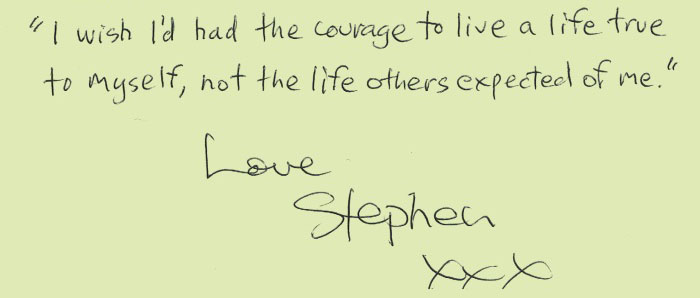 "I wish I'd had the courage to live a life true
to myself, not the life others expected of me."
Love
Stephen
xxx